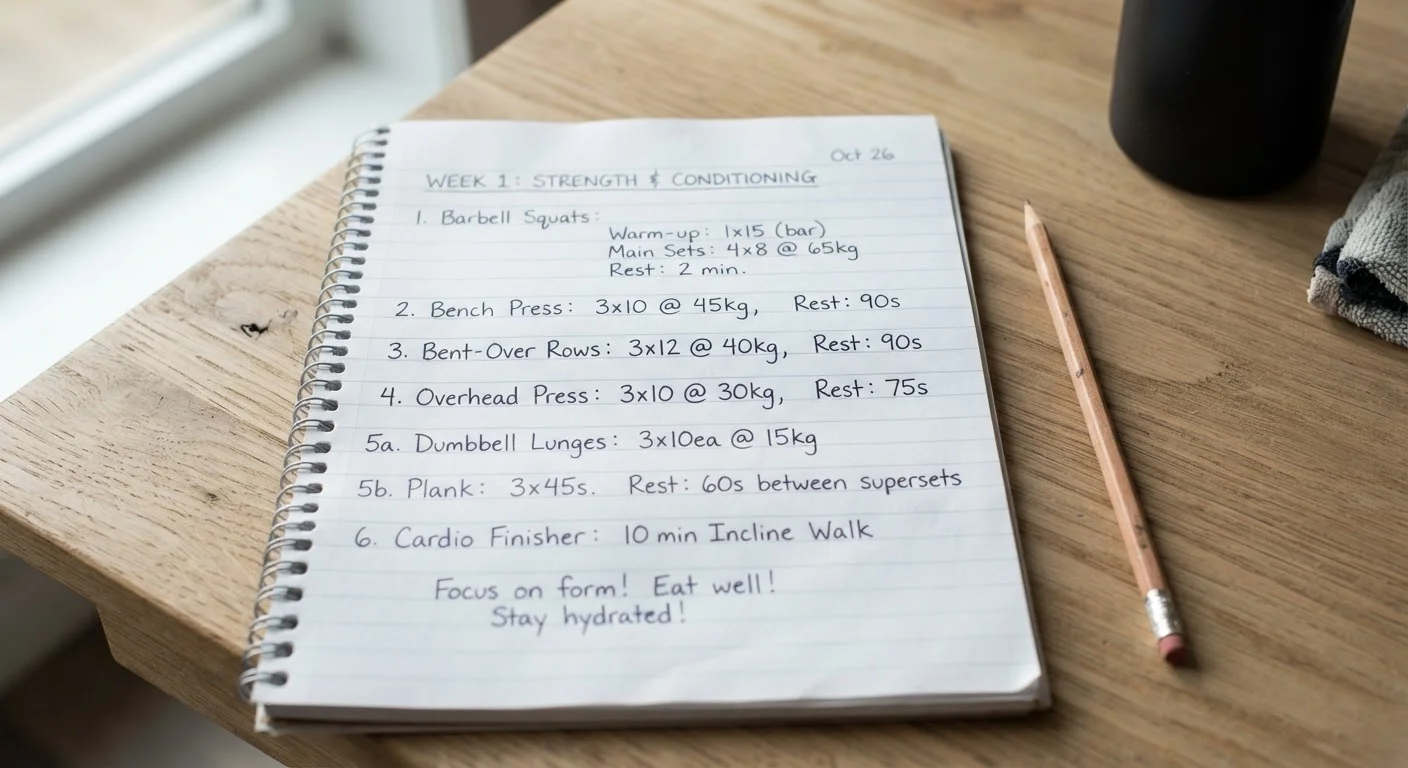 Oct 26
WEEK 1: STRENGTH & CONDITIONING
1. Barbell Squats:
Warm-up: 1x15 (bar)
Main Sets: 4x8 @ 65kg
Rest: 2 min.
2. Bench Press: 3x10 @ 45kg, Rest: 90s
3. Bent-Over Rows: 3x12 @ 40kg, Rest: 90s
4. Overhead Press: 3x10 @ 30kg, Rest: 75s
5a. Dumbbell Lunges: 3x10ea @ 15kg
5b. Plank: 3x45s. Rest: 60s between supersets
6. Cardio Finisher: 10 min Incline Walk
Focus on form! Eat well!
Stay hydrated!